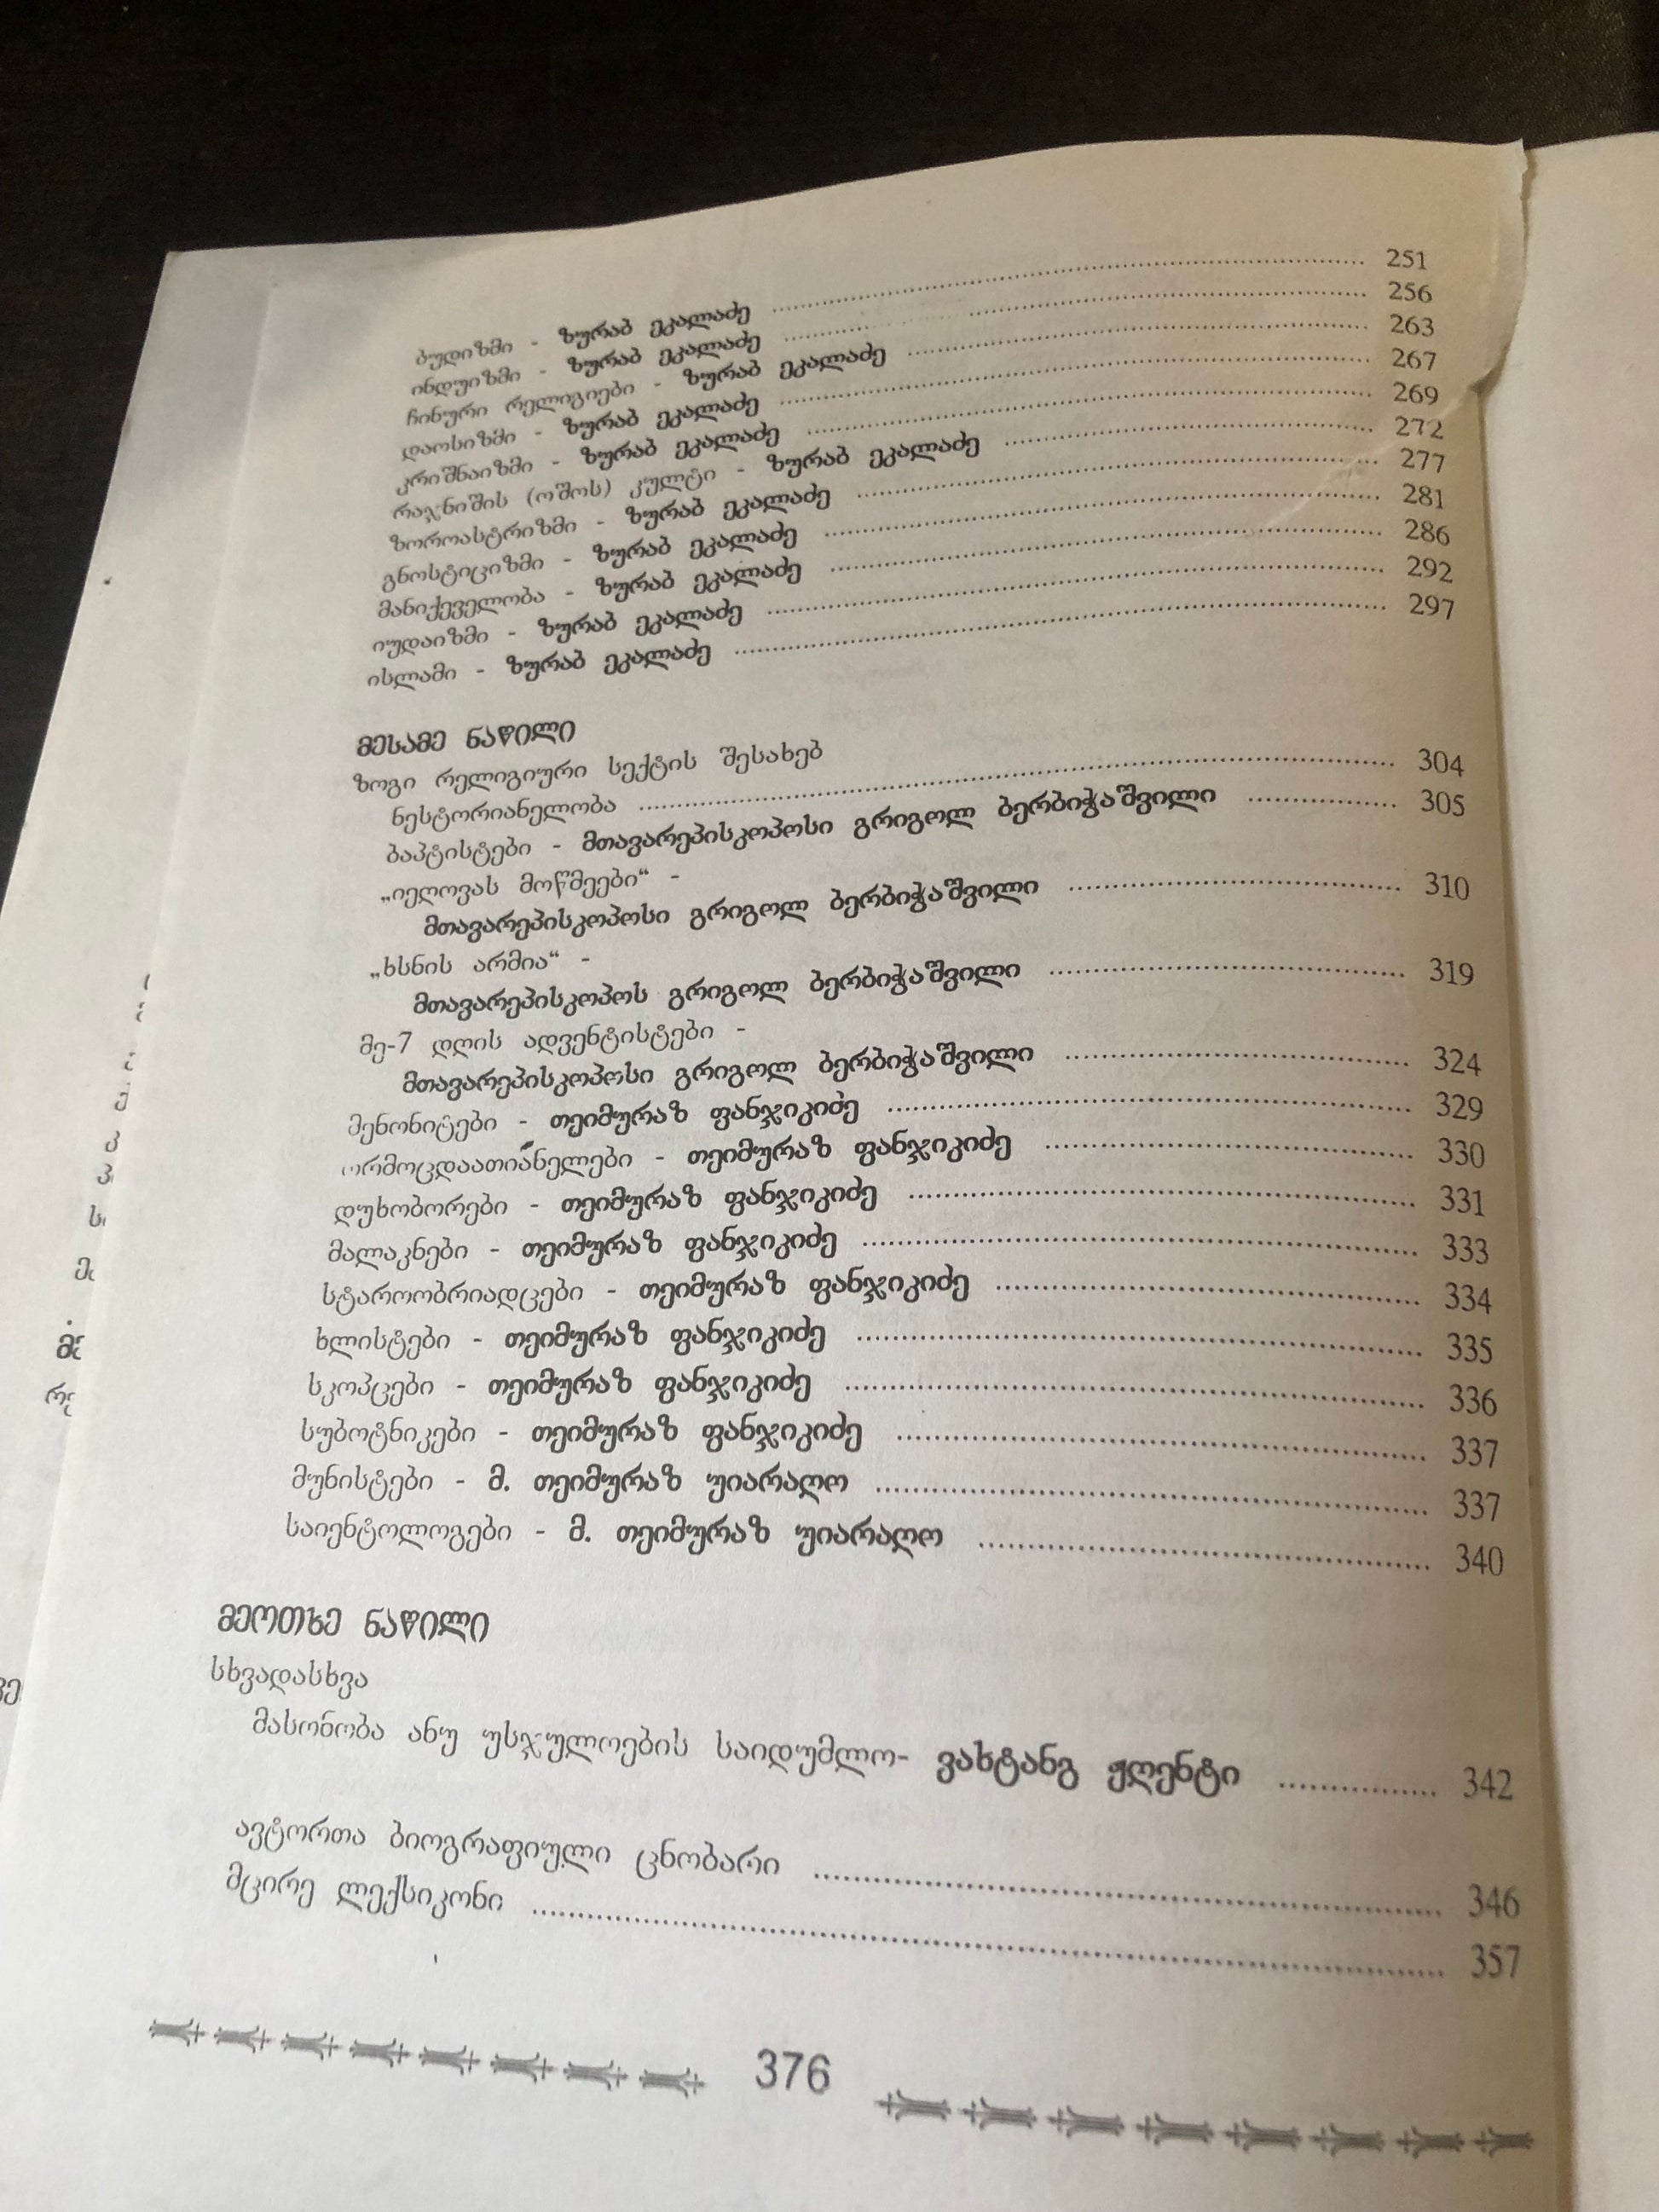 ბუდიზმი - ზურაბ ეკალაძე ........ 251
ინდუიზმი - ზურაბ ეკალაძე ........ 256
ჩინური რელიგიები - ზურაბ ეკალაძე ........ 263
დაოსიზმი - ზურაბ ეკალაძე ........ 267
კრიშნაიზმი - ზურაბ ეკალაძე ........ 269
რაჯნიშის (ოშოს) კულტი - ზურაბ ეკალაძე ........ 272
ზოროასტრიზმი - ზურაბ ეკალაძე ........ 277
გნოსტიციზმი - ზურაბ ეკალაძე ........ 281
მანიქეველობა - ზურაბ ეკალაძე ........ 286
იუდაიზმი - ზურაბ ეკალაძე ........ 292
ისლამი - ზურაბ ეკალაძე ........ 297
მესამე ნაწილი
ზოგი რელიგიური სექტის შესახებ
ნესტორიანელობა ........ 304
ბაპტისტები - მთავარეპისკოპოსი გრიგოლ ბერბიჭაშვილი ........ 305
„იეღოვას მოწმეები“ -
მთავარეპისკოპოსი გრიგოლ ბერბიჭაშვილი ........ 310
„ხსნის არმია“ -
მთავარეპისკოპოს გრიგოლ ბერბიჭაშვილი ........ 319
მე-7 დღის ადვენტისტები -
მთავარეპისკოპოსი გრიგოლ ბერბიჭაშვილი ........ 324
მენონიტები - თეიმურაზ ფანჯიკიძე ........ 329
ორმოცდაათიანელები - თეიმურაზ ფანჯიკიძე ........ 330
დუხობორები - თეიმურაზ ფანჯიკიძე ........ 331
მალაკნები - თეიმურაზ ფანჯიკიძე ........ 333
სტაროობრიადცები - თეიმურაზ ფანჯიკიძე ........ 334
ხლისტები - თეიმურაზ ფანჯიკიძე ........ 335
სკოპცები - თეიმურაზ ფანჯიკიძე ........ 336
სუბოტნიკები - თეიმურაზ ფანჯიკიძე ........ 337
მუნისტები - მ. თეიმურაზ უიარაღო ........ 337
საიენტოლოგები - მ. თეიმურაზ უიარაღო ........ 340
მეოთხე ნაწილი
სხვადასხვა
მასონობა ანუ უსჯულოების საიდუმლო- ვახტანგ ჟღენტი ........ 342
ავტორთა ბიოგრაფიული ცნობარი ........ 346
მცირე ლექსიკონი ........ 357
376